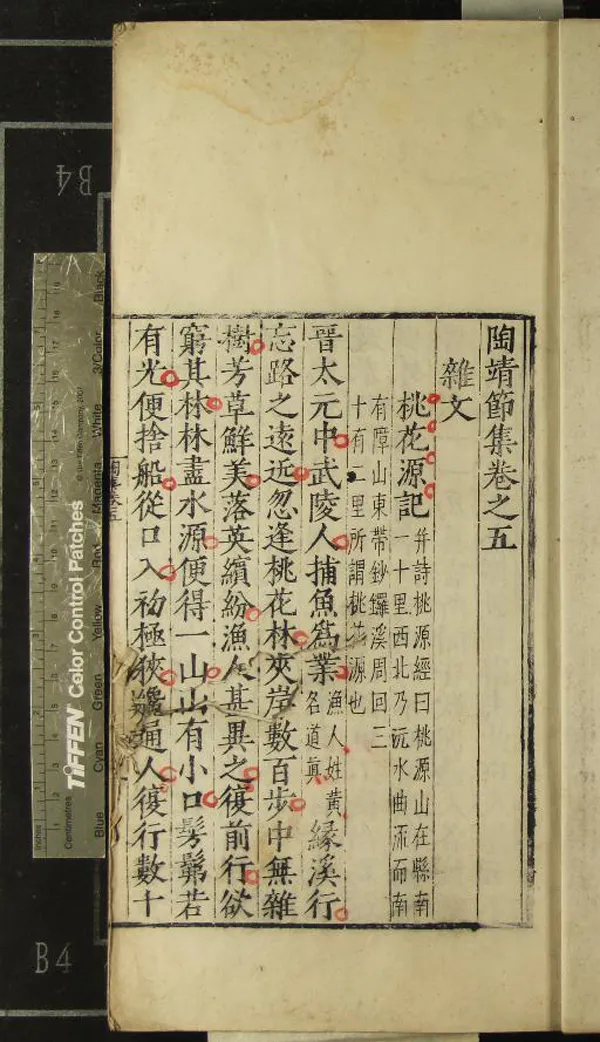 陶靖節集卷之五
雜文
桃花源記并詩桃源經曰桃源山在縣南
一十里西北乃沅水曲流而南
有障山東帶鈔鑼溪周回三
十有二里所謂桃花源也
晉太元中武陵人捕魚爲業漁人姓黃名道真緣溪行
忘路之遠近忽逢桃花林夾岸數百步中無雜
樹芳草鮮美落英繽紛漁人甚異之復前行欲
窮其林林盡水源便得一山山有小口髣髴若
有光便捨船從口入初極狹纔通人復行數十
TIFFEN Color Control Patches
© The Tiffen Company, 2007
Inches
Centimetres
Blue Cyan Green Yellow Red Magenta White 3/Color Black
B4
B4